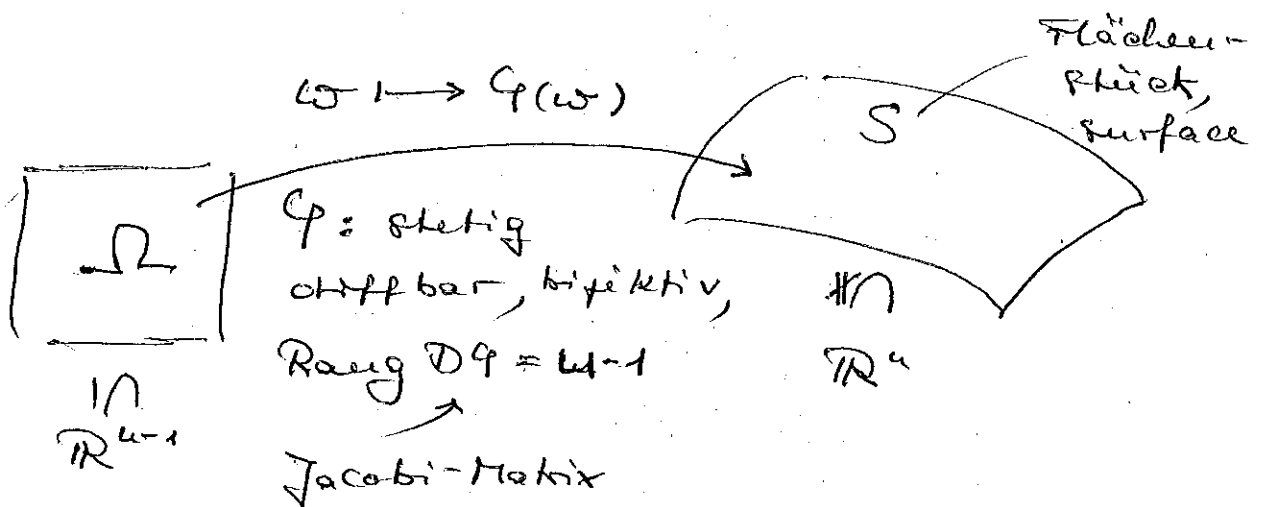 Flächen-
stück,
surface
ω ↦ φ(ω)
S
Ω
φ: stetig
diffbar, bijektiv,
Rang Dφ = n-1
∩
ℝⁿ
|∩
ℝⁿ⁻¹
Jacobi-Matrix